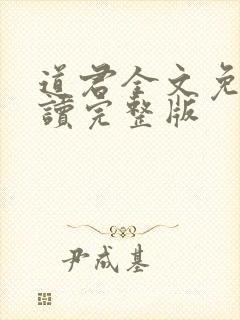 道君全文免
讀完整版
尹成基